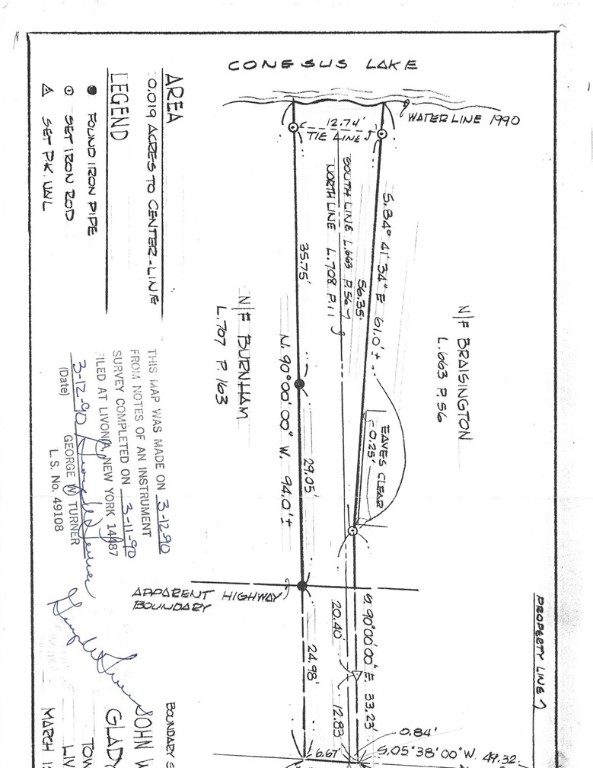 CONESUS LAKE
WATER LINE 1990
12.74'
TIE LINE
SOUTH LINE L.663 P.56
NORTH LINE L.708 P.11
S. 84° 41' 34" E 61.0'±
56.35'
35.75'
N/F BRAISINGTON
L.663 P.56
N/F BURNHAM
L.707 P.163
N. 90°00'00" W. 94.0'±
29.05'
EAVES CLEAR
0.25'
APPARENT HIGHWAY
BOUNDARY
20.40'
S. 90°00'00" E. 33.23'
24.98'
12.83'
0.84'
6.67'
S.05°38'00" W. 49.32
PROPERTY LINE
AREA
0.019 ACRES TO CENTER-LINE
LEGEND
FOUND IRON PIPE
SET IRON ROD
SET P.K. NAIL
THIS MAP WAS MADE ON 3-12-90
FROM NOTES OF AN INSTRUMENT
SURVEY COMPLETED ON 3-11-90
FILED AT LIVONIA, NEW YORK 14487
3-12-90
(Date)
GEORGE W TURNER
L. S. No. 49108
BOUNDARY S
JOHN W
GLADY
TOW
LIV
MARCH 1